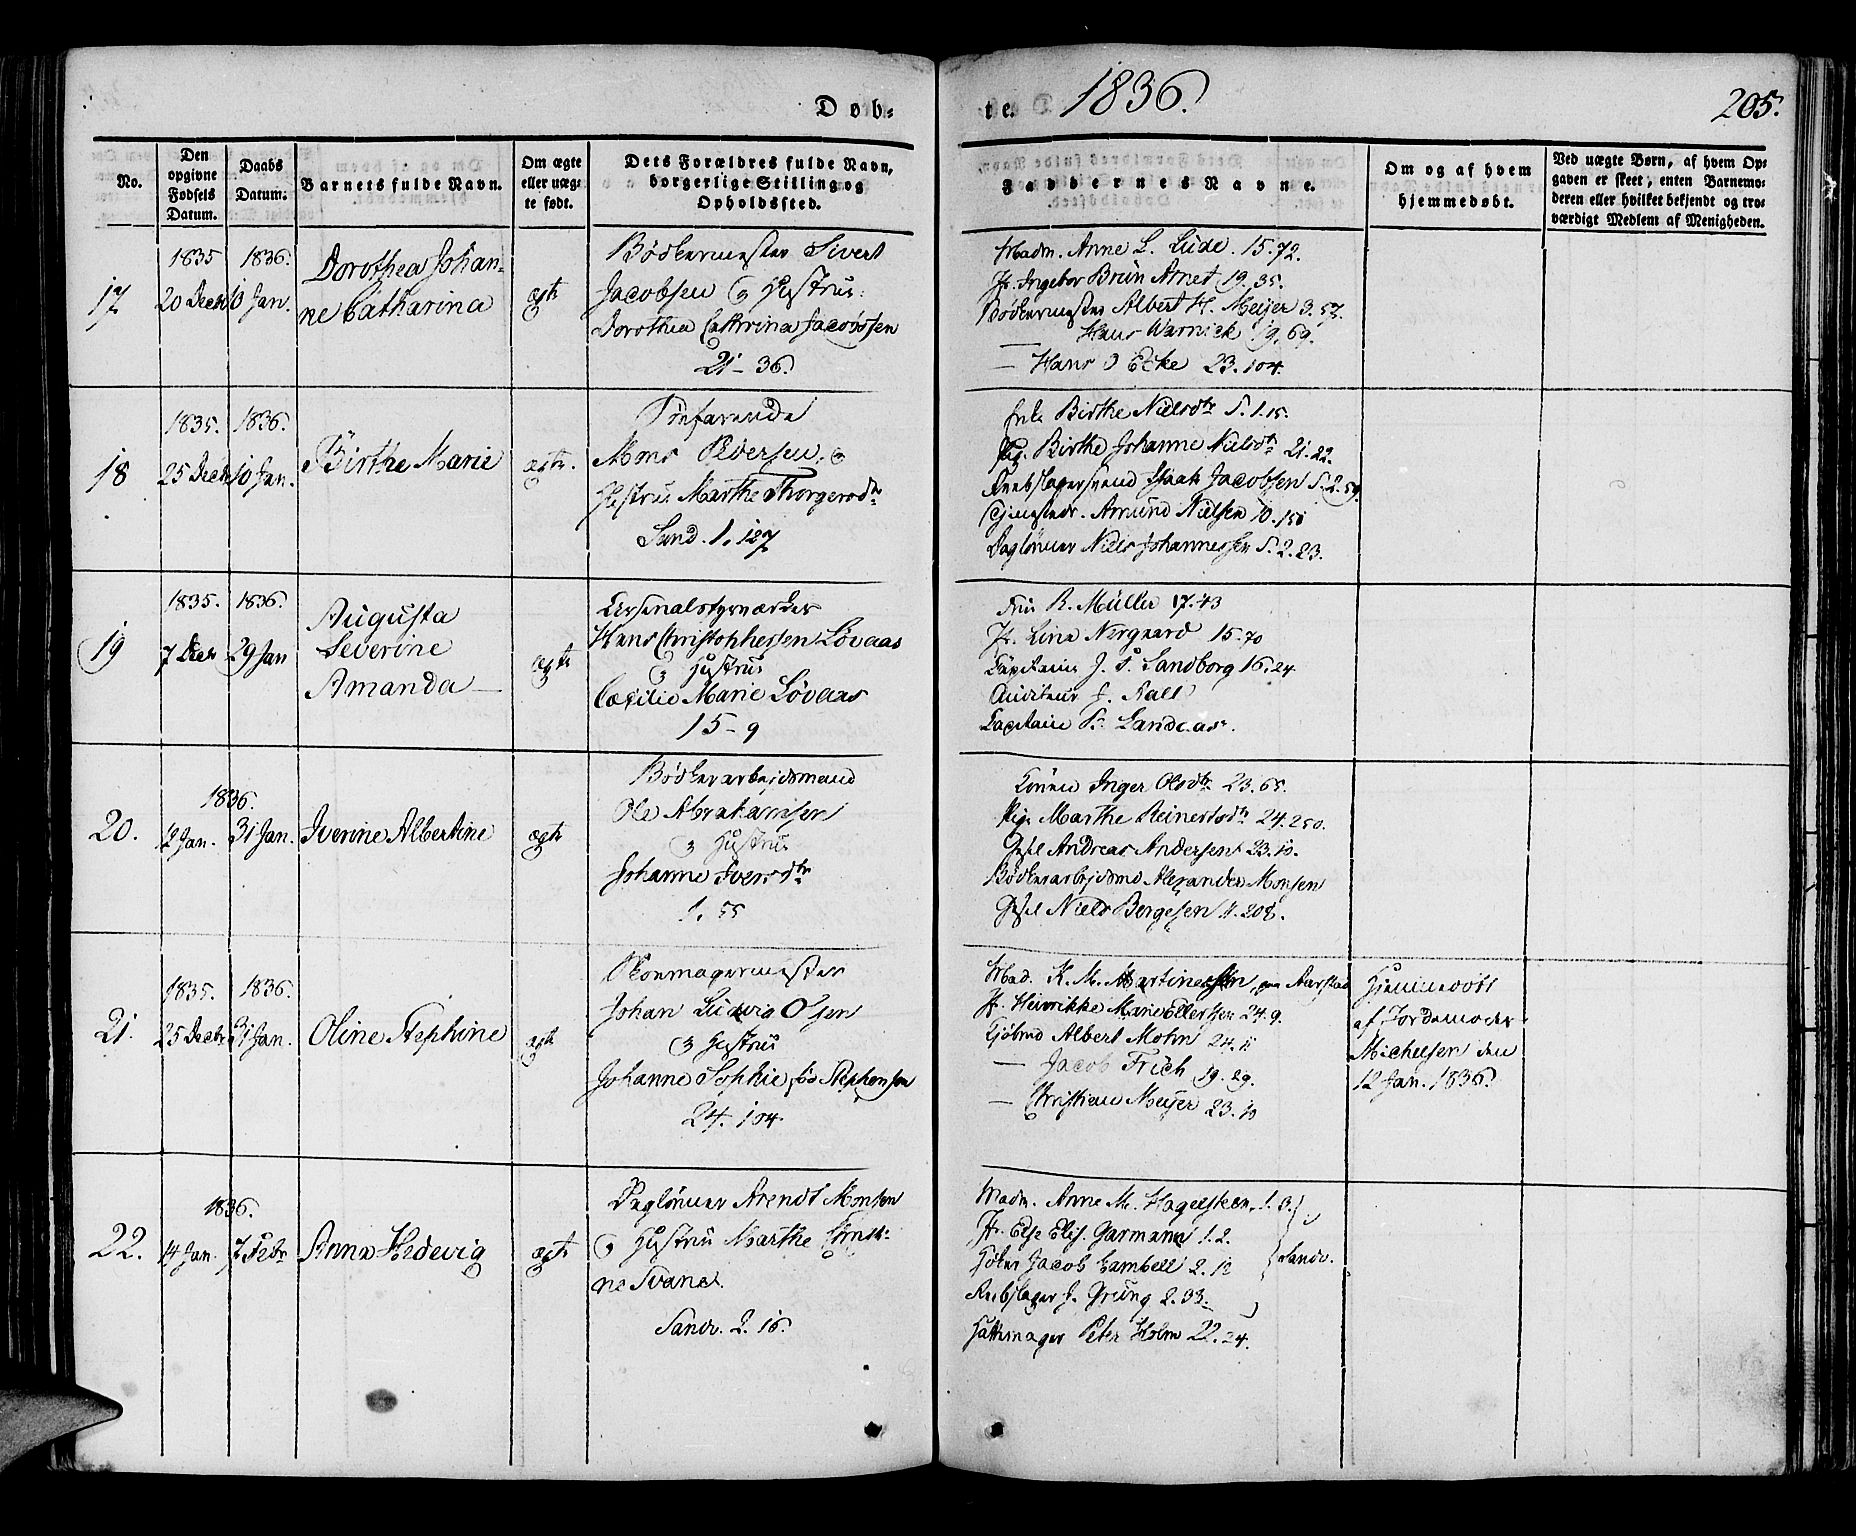 Døb-
te. 1836.
205.
No.
Den opgivne Fødsels Datum.
Daabs Datum.
Barnets fulde Navn.
Om ægte eller uægte født.
Dets Forældres fulde Navn, borgerlige Stilling og Opholdssted.
Faddernes Navne.
Om og af hvem hjemmedøbt.
Ved uægte Børn, af hvem Opgaven er skeet, enten Barnemoderen eller hvilket bekjendt og troværdigt Medlem af Menigheden.
17
1835
20 Decbr
1836.
10 Jan.
Dorothea Johan-
ne Catharina
ægte
Bødkermester Sivert
Jacobsen og Hustru:
Dorothea Cathrina Jacobsen
21-36.
Madm. Anne L. Lude. 15.72.
Jf. Ingebor Brun Arnet 19.35.
Bødkermester Albert H. Meijer 3.57.
Hans Warnick 19.69.
— Hans J Ecke 23.104.
18
1835.
25 Decbr
1836.
10 Jan.
Birthe Marie
ægte.
Mons Pedersen, og
Hustru Marthe Thorgersdtr
Sand. 1.127
Enke Birthe Nielsdtr S.1.15.
Pig. Birthe Johanne Nielsdtr 21.22.
Rebslagersvend Isaak Jacobsen S.2.59.
Tjenestedr. Amund Nielsen 10.150
Dagløner Niels Johannessen S.2.23.
19
1835.
7 Decbr
1836.
29 Jan
Augusta
Severine
Amanda —
ægte
Hans Christophersen Løvaas
og Hustru
Cæcilie Marie Løvaas
15-9
Fru R. Müller 17.43
Jf. Lina Nergaard 15.70
Capitain J. S. Sandborg 16.24
Auditeur J. Fall
Capitain
20.
1836.
12 Jan.
31 Jan.
Iverine Albertine
ægte
Bødkerarbejdsmand
Ole Abrahamsen
og Hustru
Johanne Iversdtr
1.55
Konen Inger Olsdtr 23.65.
Pige Marthe Reinertsdtr 24.250.
Gesel Andreas Andersen 23.10.
Bødkerarbejdsmd Alexander Monsen
Gesel Niels Børgesen 11.208.
21.
1835.
25 Decbr
1836.
31 Jan.
Oline Stephine
ægte
Skoemagermester
Johan Ludvig Olsen
og Hustru
Johanne Sophie, fød Stephensen
24.104.
Mad. K. M. Martinessen, paa Aarstad
Jf. Heinrikke Marie Ellertsen 24.9.
Kjøbmd Albert Mohn 24.11
— Jacob Frich 19.29.
— Christian Meijer 23.10
Hjemmedøbt
af Jordemoder
Michelsen den
12 Jan. 1836.
22.
1836.
14 Jan.
7 Febr
Anna Hedevig
ægte
Dagløner Arendt Monsen
og Hustru Marthe Christi-
ne Svane.
Sandv. 2.16.
Madm. Anne M. Hagelsteen, 1.3.
Jf. Else Elis. Garmann 1.2.
Jacob Gambell 2.12
Sandv.
Rebslager J. Grung 2.33.
Hattemager Peter Holm 22.24.